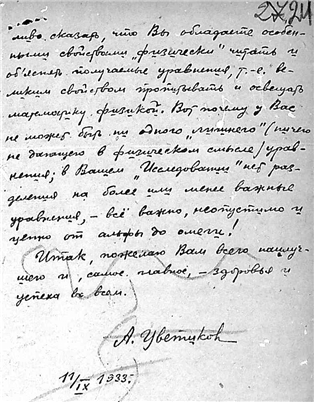 2794
ливо сказать, что Вы обладаете особен-
ными свойствами „физически" читать и
объяснять получаемые уравнения, т.-е. ве-
ликим свойством пропитывать и освещать
математику физикой. Вот почему у Вас
не может быть ни одного „лишнего" (ничего
не дающего в физическом смысле) урав-
нения; в Вашем „Исследовании" нет раз-
деления на более или менее важные
уравнения, – всё важно, неопустимо и
ценно от альфы до омеги!
Итак, пожелаю Вам всего наилуч-
шего и, самое главное, – здоровья и
успеха во всем.
А. Цветиков
11/IX 1933.